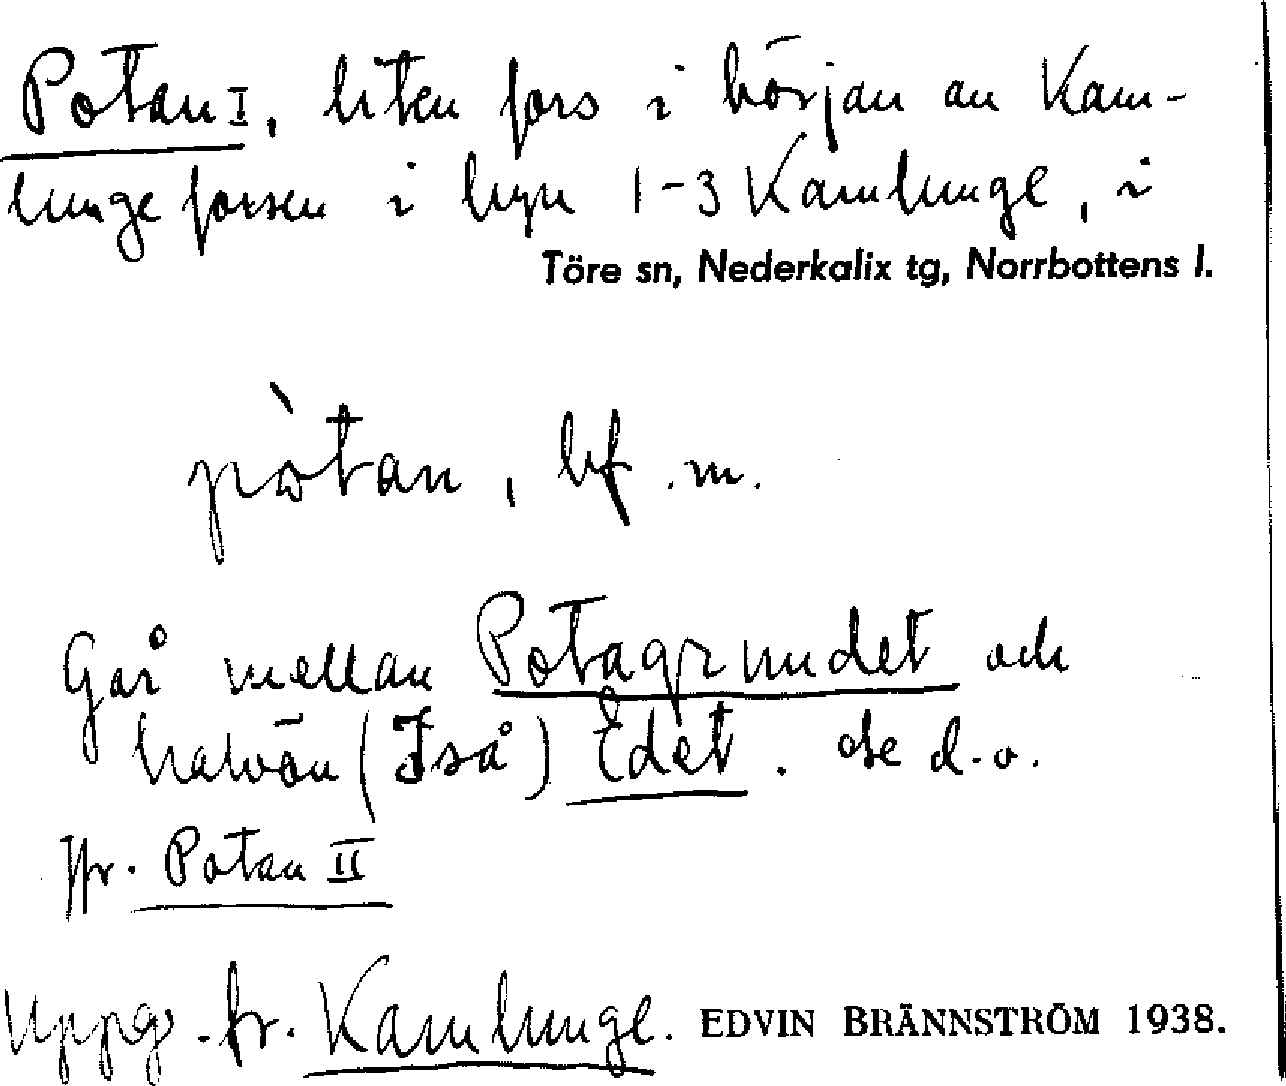 Potan I, liten fors i början av Kam-
lungeforsen i byn 1-3 Kamlunge, i
Töre sn, Nederkalix tg, Norrbottens l.
pòtan, bf. m.
Går mellan Potagrundet och
halvön (Iså) Edet. Se d.o.
Jfr. Potan II
Uppg. fr. Kamlunge. EDVIN BRÄNNSTRÖM 1938.